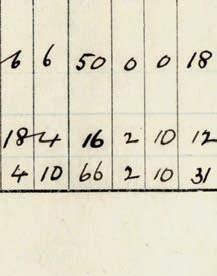 6 6 50 0 0 18
18 4 16 2 10 12
4 10 66 2 10 31